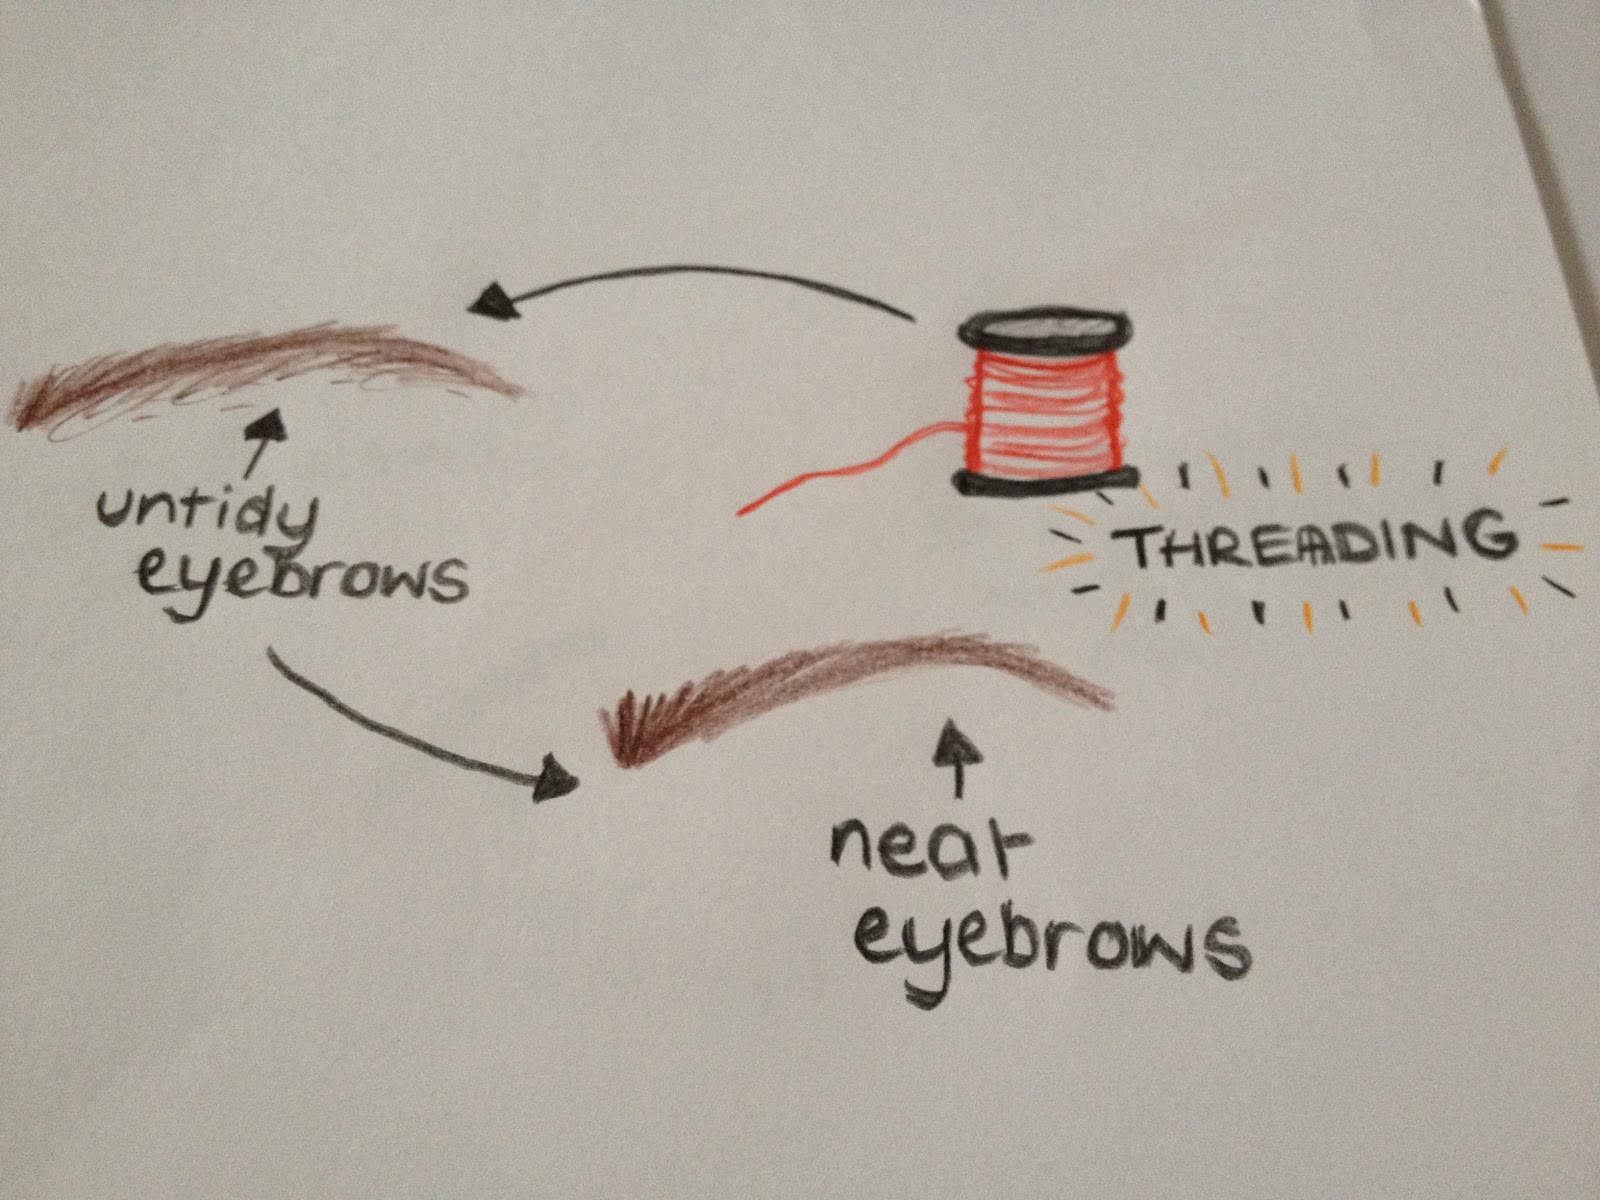 untidy
eyebrows
THREADING
neat
eyebrows